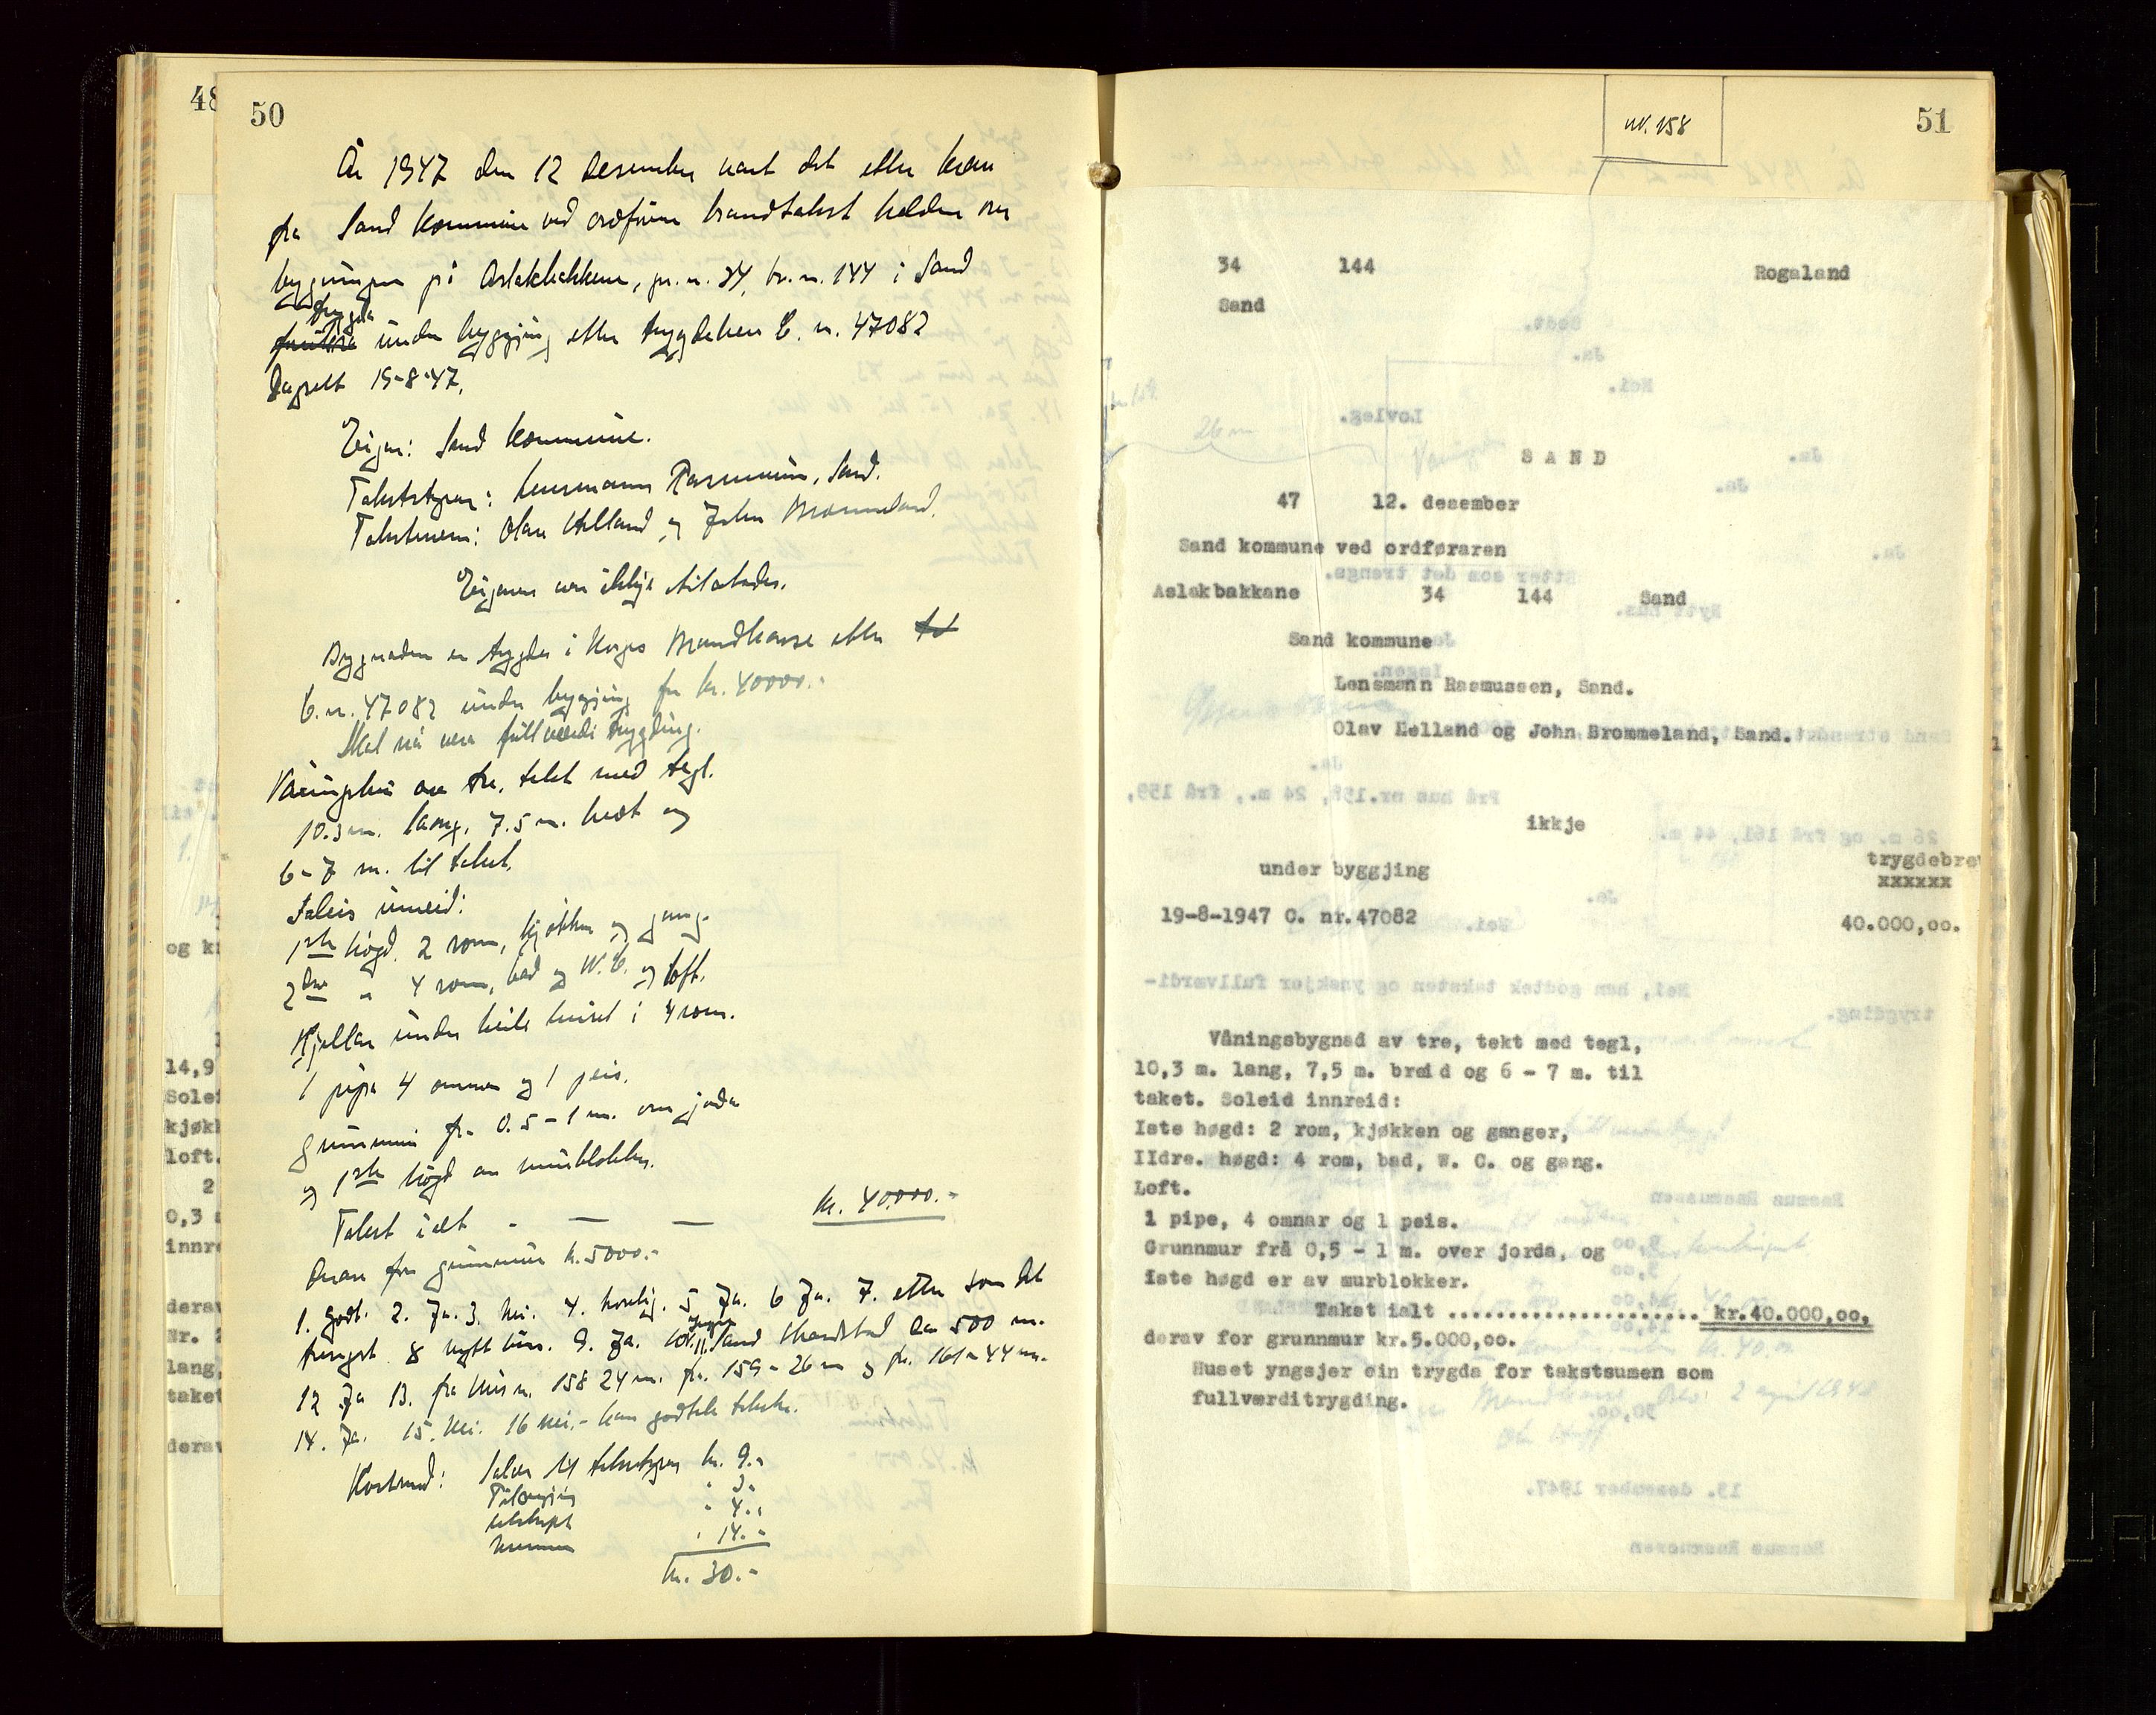 48
50
År 1947 den 12 desember vart det etter krav
frå Sand kommune ved ordføraren brandtakst halden over
bygningen på Aslakbakkane, gr.n. 34, br.n. 144 i Sand
trygda
under byggjing etter trygdebrev C. n. 47082
Dagsett 19-8-47.
Eigar: Sand kommune.
Takststyrar: Lensmann Rasmussen, Sand.
Takstmenn: Olav Helland og John Brommeland.
Eigaren var ikkje tilstades.
Bygnaden er trygda i Noregs Brandkasse etter
C.n. 47082 under byggjing for kr. 40000.-
Skal nå vera fullverdi trygding.
Våningshus av tre, tekt med tegl.
10.3 m. lang, 7.5 m. breit og
6-7 m. til taket.
Soleis innreid:
1ste høgd. 2 rom, kjøkken og gang.
2dre " 4 rom, bad og W.C. og loft.
Kjellar under heile huset i 4 rom.
1 pipe 4 omnar og 1 peis.
Grunnmur frå 0.5 - 1 m. over jorda
og 1ste høgd av murblokker.
Takst ialt - — — kr. 40.000.-
Derav for grunnmur k. 5000.-
1. godt. 2. Ja. 3. Nei. 4. lovlig. 5 Ja. 6 Ja. 7. etter som det
trengst 8 nytt hus. 9. Ja. 10. Ingen 11. Sand strandstad ca 500 m.
12 Ja 13. frå hus n. 158 24 m. frå 159 - 26 m og frå 161 - 44 m.
14. Ja. 15. Nei. 16 Nei. - han godtek taksten.
Kostnad: Salær til takststyrar kr. 9.-
" 3.-
utskrift " 4.-
" 14.-
kr. 30.-
og k
14,9
Sole
kjøk
loft.
2
0,3
innr
derav
Nr. 2
lang,
taket
derav
nr. 158
51
34 144 Rogaland
Sand
SAND
47 12. desember
Sand kommune ved ordføraren
Aslakbakkane 34 144 Sand
Sand kommune
Lensmann Rasmussen, Sand.
Olav Helland og John Brommeland, Sand.
ikkje
under byggjing trygdebrev
xxxxxx
19-8-1947 C. nr.47082 40.000,oo.
Våningsbygnad av tre, tekt med tegl,
10,3 m. lang, 7,5 m. breid og 6 - 7 m. til
taket. Soleid innreid:
Iste høgd: 2 rom, kjøkken og ganger,
IIdre. høgd: 4 rom, bad, W. C. og gang.
Loft.
1 pipe, 4 omnar og 1 peis.
Grunnmur frå 0,5 - 1 m. over jorda, og
Iste høgd er av murblokker.
Takst ialt ..................... kr.40.000,oo,
derav for grunnmur kr.5.000,oo.
Huset yngsjer ein trygda for takstsumen som
fullværditrygding.